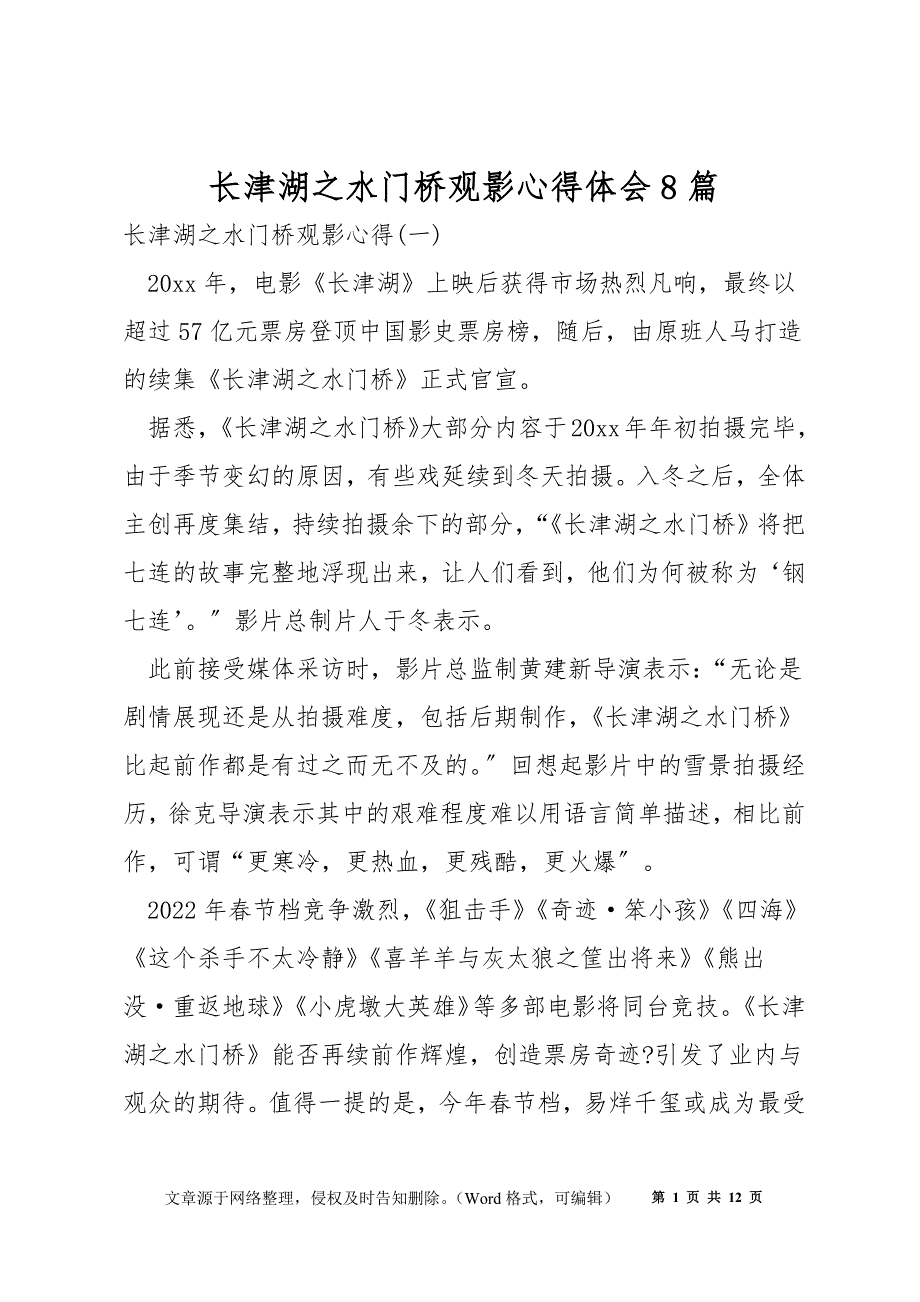 长津湖之水门桥观影心得体会8篇
长津湖之水门桥观影心得(一)
20xx年，电影《长津湖》上映后获得市场热烈凡响，最终以
超过57亿元票房登顶中国影史票房榜，随后，由原班人马打造
的续集《长津湖之水门桥》正式官宣。
据悉，《长津湖之水门桥》大部分内容于20xx年年初拍摄完毕，
由于季节变幻的原因，有些戏延续到冬天拍摄。入冬之后，全体
主创再度集结，持续拍摄余下的部分，“《长津湖之水门桥》将把
七连的故事完整地浮现出来，让人们看到，他们为何被称为‘钢
七连’。〞影片总制片人于冬表示。
此前接受媒体采访时，影片总监制黄建新导演表示：“无论是
剧情展现还是从拍摄难度，包括后期制作，《长津湖之水门桥》
比起前作都是有过之而无不及的。〞回想起影片中的雪景拍摄经
历，徐克导演表示其中的艰难程度难以用语言简单描述，相比前
作，可谓“更寒冷，更热血，更残酷，更火爆〞。
2022年春节档竞争激烈，《狙击手》《奇迹·笨小孩》《四海》
《这个杀手不太冷静》《喜羊羊与灰太狼之筐出将来》《熊出
没·重返地球》《小虎墩大英雄》等多部电影将同台竞技。《长津
湖之水门桥》能否再续前作辉煌，创造票房奇迹?引发了业内与
观众的期待。值得一提的是，今年春节档，易烊千玺或成为最受
文章源于网络整理，侵权及时告知删除。（Word格式，可编辑） 第 1 页 共 12 页